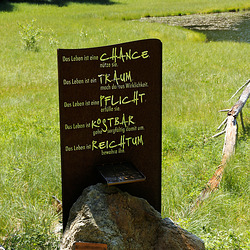 Das Leben ist eine CHANCE
nütze sie.
Das Leben ist ein TRAUM
mach daraus Wirklichkeit.
Das Leben ist eine PFLICHT
erfülle sie.
Das Leben ist KOSTBAR
gehe sorgfältig damit um.
Das Leben ist REICHTUM
bewahre ihn.